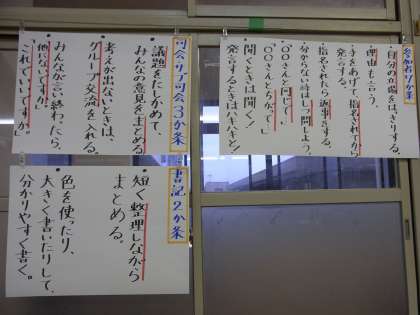 参加者7か条
・自分の立場をはっきりする。
理由も言う。
・手をあげ、指名されてから
発言する。
・指名されたら返事をする。
・分からない時はしつ問しよう。
・「○○さんと同じで、」
「○○さんとちがって、」
・聞くときは聞く!
発言するときはハキハキと!
司会・サブ司会3か条
・議題をたしかめて、
みんなの意見をまとめる
・考えが出ないときは、
グループ交流を入れる。
・みんなが言い終わったら、
「他にないですか。」
「これでいいですか。」
書記2か条
・短く整理しながら
まとめる。
・色を使ったり、
大きく書いたりして、
分かりやすく書く。